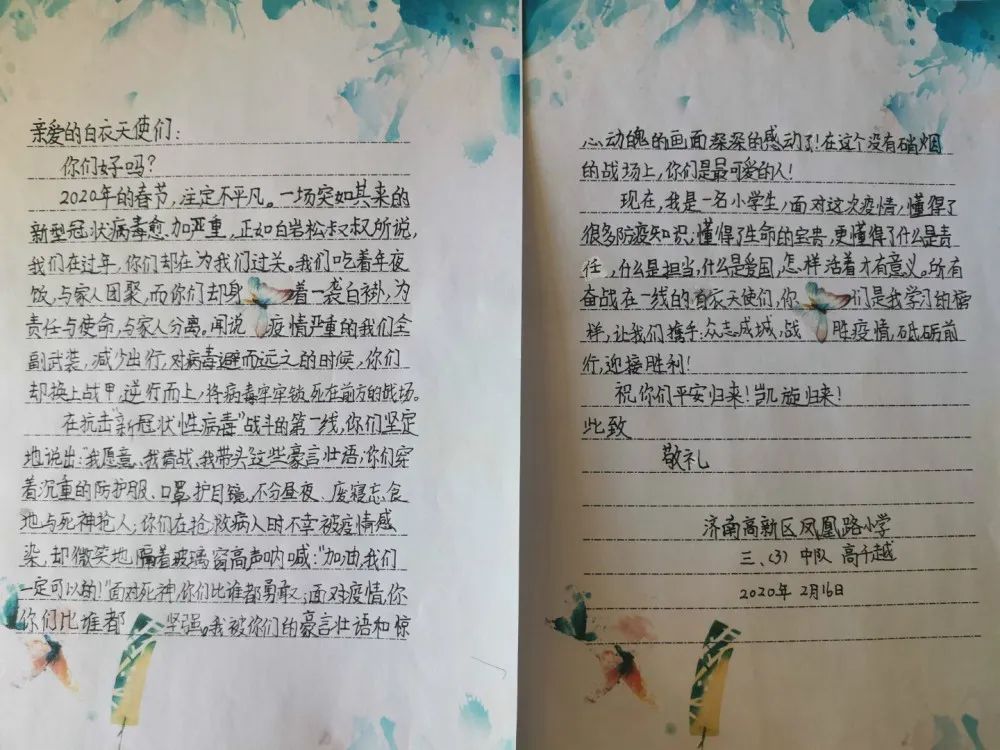 亲爱的白衣天使们：
你们好吗？
2020年的春节，注定不平凡。一场突如其来的
新型冠状病毒愈加严重，正如白岩松叔叔所说，
我们在过年，你们却在为我们过关。我们吃着年夜
饭，与家人团聚，而你们却身着一袭白褂，为
责任与使命，与家人分离。闻说疫情严重的我们全
副武装，减少出行，对病毒避而远之的时候，你们
却换上战甲，逆行而上，将病毒牢牢锁死在前方的战场。
在抗击“新冠状性病毒”战斗的第一线，你们坚定
地说出：“我愿意、我请战、我带头”这些豪言壮语；你们穿
着沉重的防护服、口罩、护目镜，不分昼夜、废寝忘食
地与死神抢人；你们在抢救病人时不幸被疫情感
染，却微笑地隔着玻璃窗高声呐喊：“加油，我们
一定可以的！”面对死神，你们比谁都勇敢；面对疫情，你
你们比谁都坚强。我被你们的豪言壮语和惊
心动魄的画面深深的感动了！在这个没有硝烟
的战场上，你们是最可爱的人！
现在，我是一名小学生，面对这次疫情，懂得了
很多防疫知识，懂得了生命的宝贵，更懂得了什么是责
任，什么是担当，什么是爱国，怎样活着才有意义。所有
奋战在一线的白衣天使们，你们是我学习的榜
样，让我们携手，众志成城，战胜疫情，砥砺前
行，迎接胜利！
祝你们平安归来！凯旋归来！
此致
敬礼
济南高新区凤凰路小学
三、（3）中队 高千越
2020年2月16日